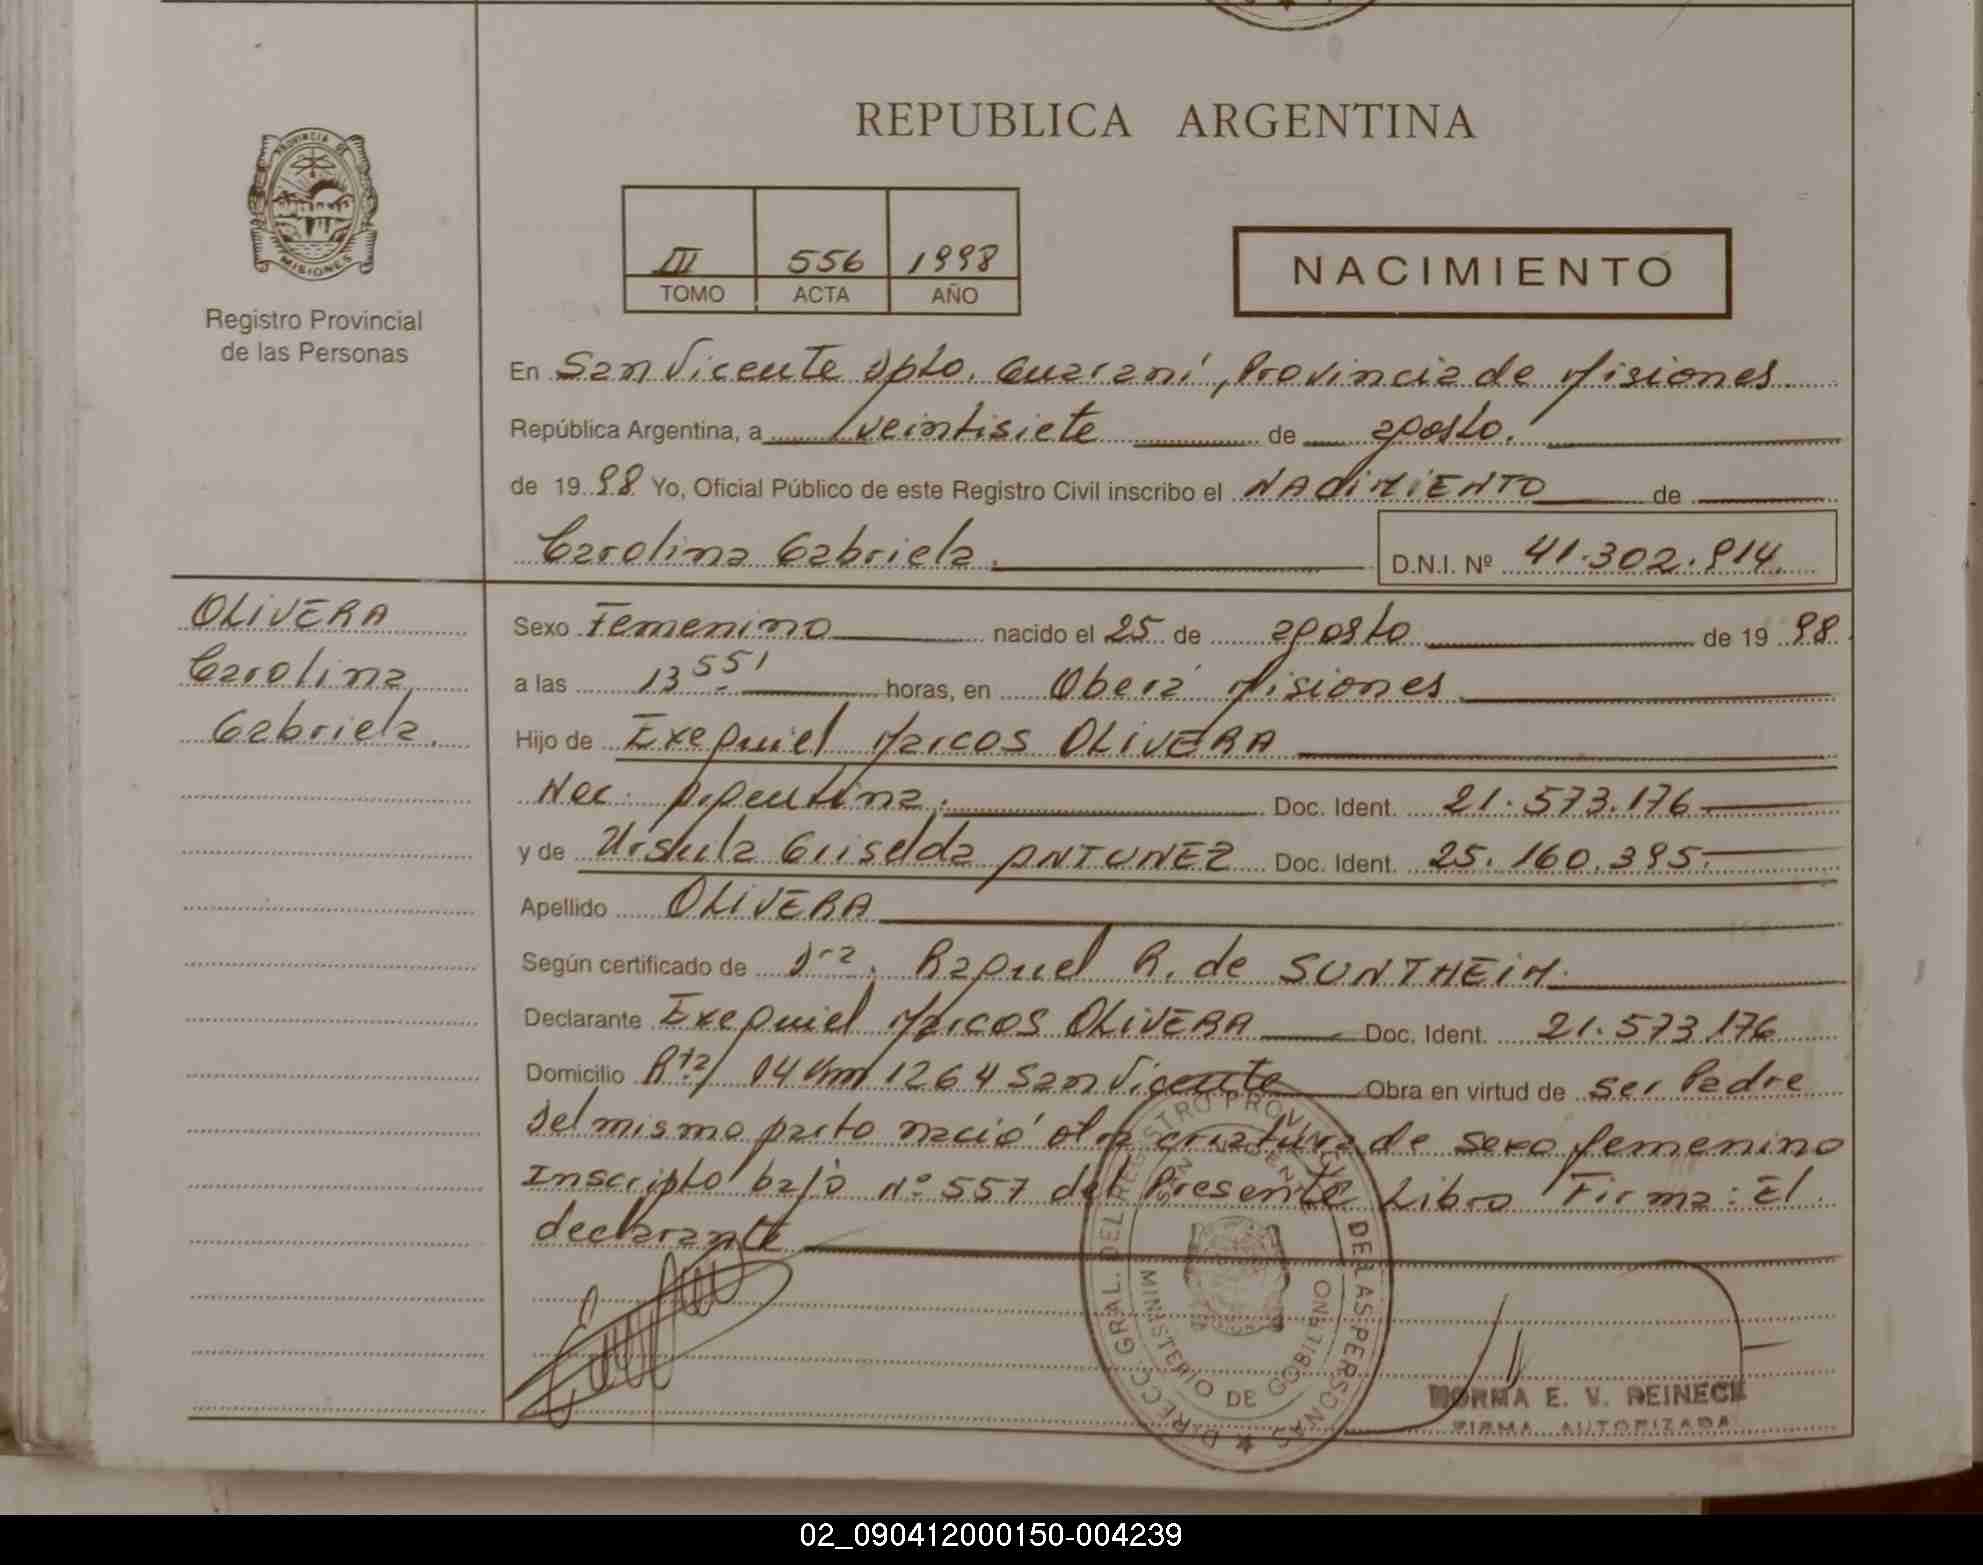 REPUBLICA ARGENTINA
PROVINCIA DE
MISIONES
Registro Provincial
de las Personas
III 556 1998
TOMO ACTA AÑO
NACIMIENTO
En San Vicente Dpto. Guaraní, Provincia de Misiones
República Argentina, a veintisiete de agosto.
de 1998 Yo, Oficial Público de este Registro Civil inscribo el NACIMIENTO de
Carolina Gabriela. D.N.I. Nº 41.302.914
OLIVERA
Carolina
Gabriela.
Sexo Femenino nacido el 25 de agosto de 1998
a las 13 55' horas, en Oberá Misiones
Hijo de Exequiel Marcos OLIVERA
Nac. Argentina. Doc. Ident. 21.573.176
y de Ursula Griselda ANTUNEZ Doc. Ident. 25.160.395.
Apellido OLIVERA
Según certificado de Dra. Raquel R. de SUNTHEIM.
Declarante Exequiel Marcos OLIVERA Doc. Ident. 21.573.176
Domicilio Rta/ 14 Km 1264 San Vicente Obra en virtud de ser Padre
Del mismo parto nació otra criatura de sexo femenino
Inscripto bajo Nº 557 del Presente Libro Firma: El
declarante
DIRECC. GRAL. DEL REGISTRO PROVINCIAL DE LAS PERSONAS
SAN VICENTE
MINISTERIO DE GOBIERNO
NORMA E. V. REINECK
FIRMA AUTORIZADA
02_090412000150-004239